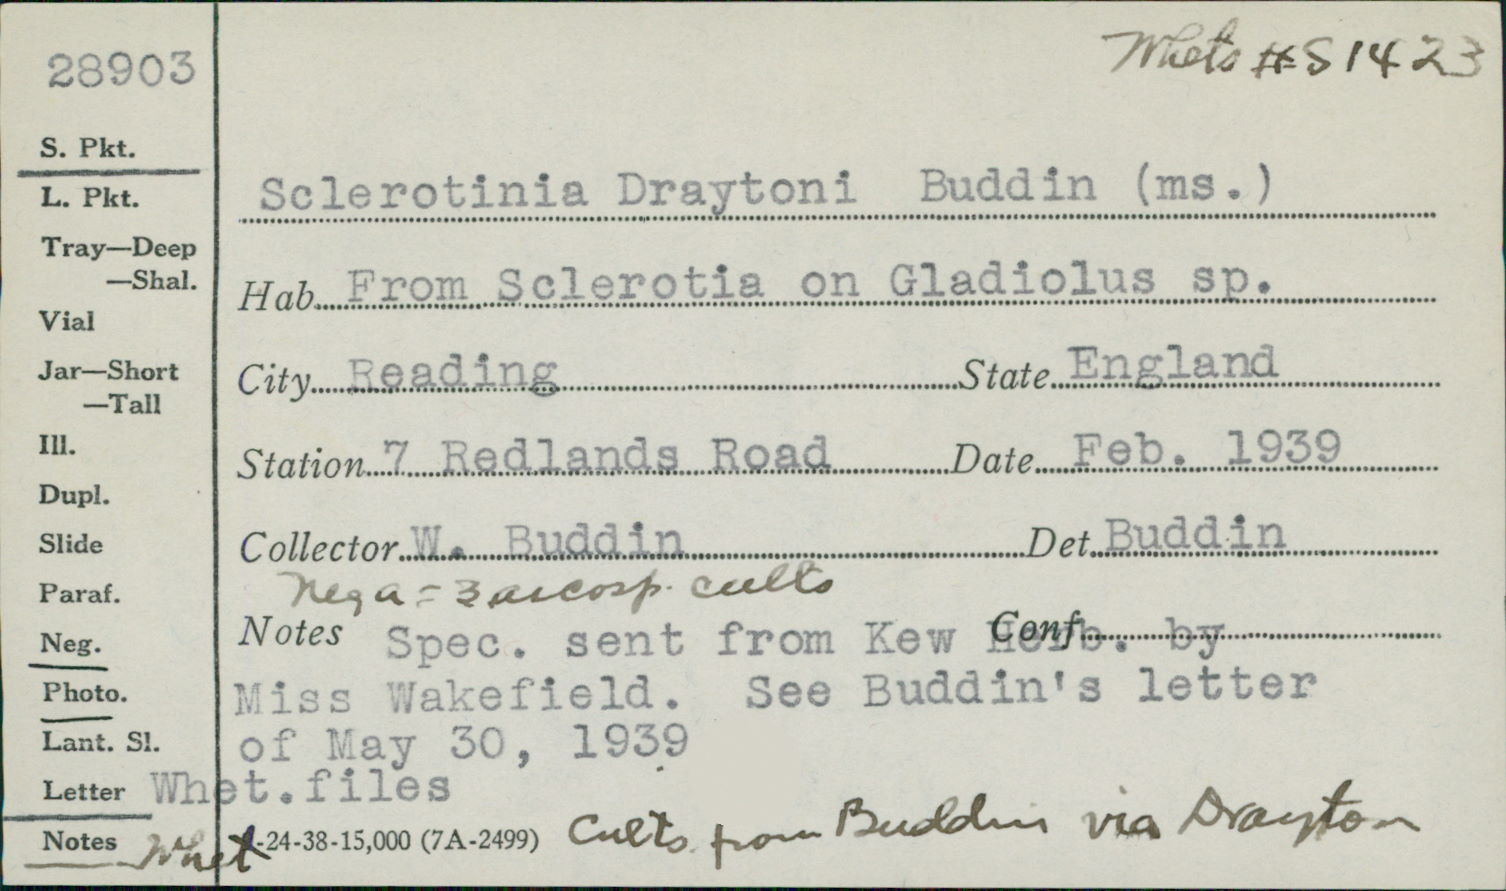 28903
Whets #S1423
S. Pkt.
L. Pkt.
Sclerotinia Draytoni Buddin (ms.)
Tray—Deep
—Shal.
Hab. From Sclerotia on Gladiolus sp.
Vial
Jar—Short
—Tall
City Reading State England
Ill.
Station 7 Redlands Road Date Feb. 1939
Dupl.
Slide
Collector W. Buddin Det. Buddin
Paraf.
Neg a = 3 ascosp. cults
Neg.
Notes Spec. sent from Kew Herb. by Conf.
Photo.
Miss Wakefield. See Buddin's letter
Lant. Sl.
of May 30, 1939
Letter Whet.files
Notes Whet -24-38-15,000 (7A-2499) Cults from Buddin via Drayton